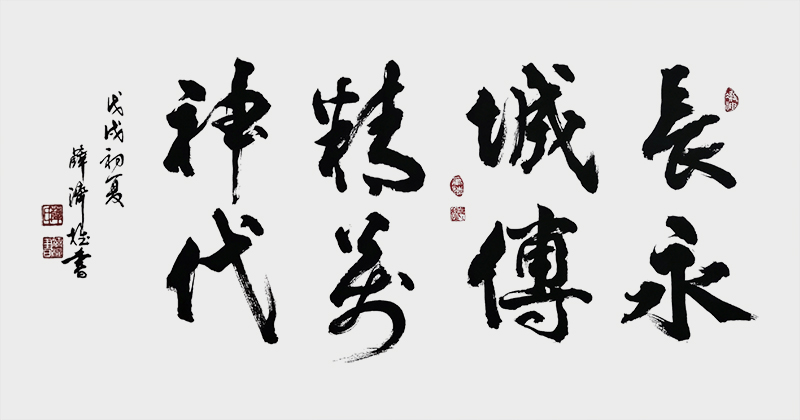 長城精神
永傳萬代
戊戌初夏
薛濟書